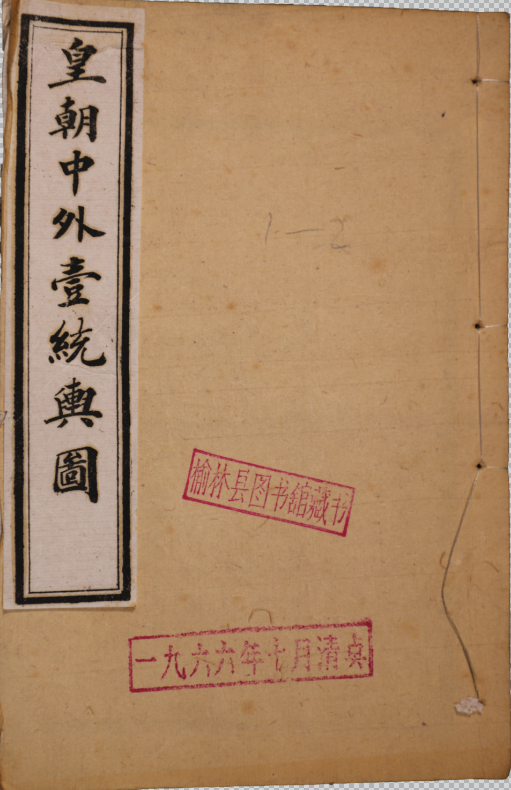 皇朝中外壹統輿圖
1-2
榆林县图书館藏书
一九六六年七月清点